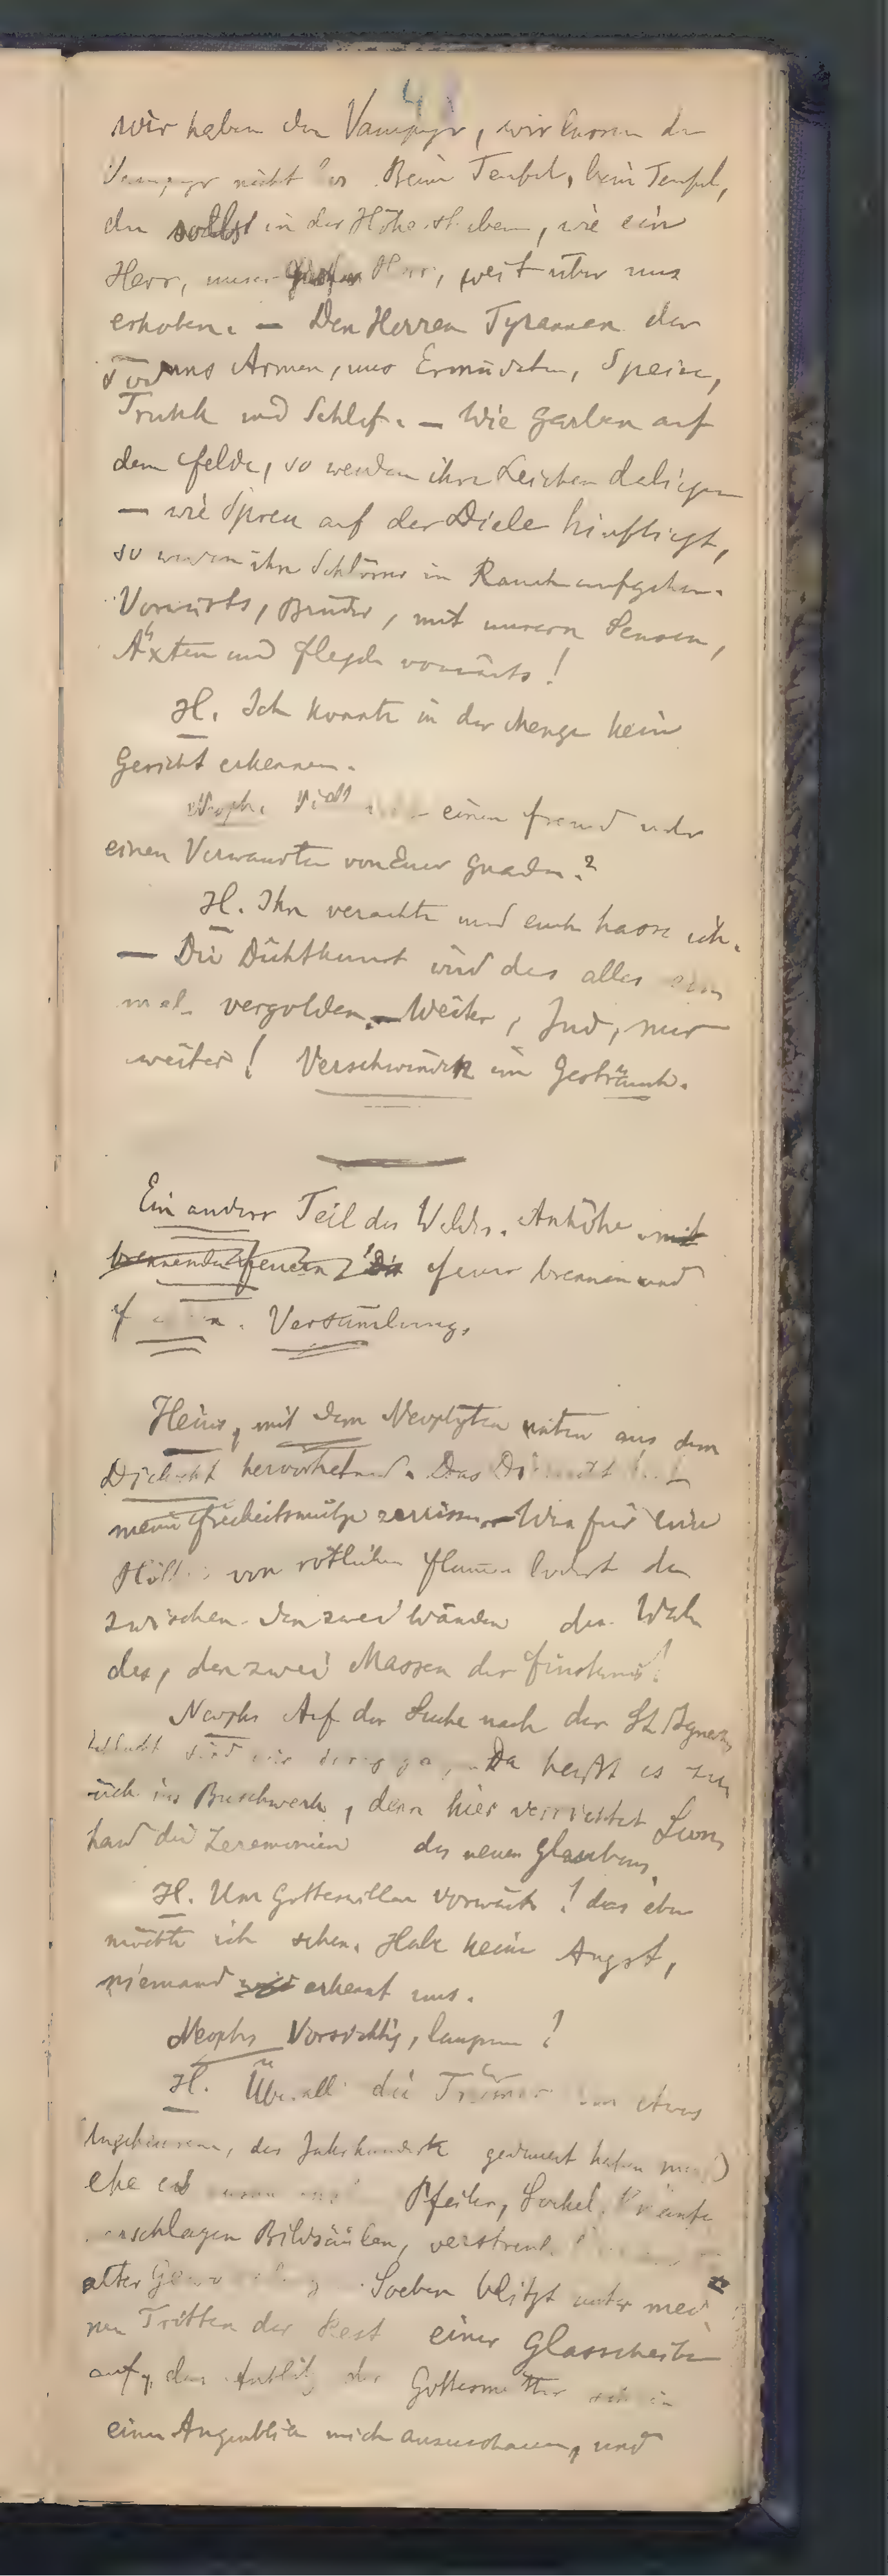 wir haben den Vampyr, wir lassen den
Vampyr nicht los. Beim Teufel, beim Teufel,
du sollst in der Höhe sterben, wie ein
Herr, unser Herr, weit über uns
erhoben. — Den Herren Tyrannen den
Tod uns Armen, uns Ermüdeten, Speise,
Trunk und Schlaf. — Wie Garben auf
dem Felde, so werden ihre Leichen daliegen
— wie Spreu auf der Diele hinfliegt,
so werden ihre Schlösser in Rauch aufgehen.
Vorwärts, Brüder, mit unsern Sensen,
Äxten und Flegeln vorwärts!
H. Ich konnte in der Menge kein
Gesicht erkennen.
Neoph. einen Freund oder
einen Verwandten von Euer Gnaden?
H. Ihn verachte und euch hasse ich.
— Die Dichtkunst wird das alles ein
mal vergolden. — Weiter, Jud, nur
weiter! Verschwinden im Gesträuch.
Ein anderer Teil des Waldes. Anhöhe mit
brennenden Feuern Feuer brennen und
Versam̅lung.
Heinr, mit dem Neophyten unten aus dem
Dickicht hervortretend. Das Dickicht hat
meine Freiheitsmütze zerrissen — Was für eine
Hölle von rötlichen Flam̅en lodert da
zwischen den zwei Wänden des Wal
des, den zwei Massen der Finsternis!
Neoph. Auf der Suche nach der St Ignaz
schlucht sind wir Da heißt es zur
ück ins Buschwerk, denn hier verrichtet Leon
hard die Zeremonien des neuen Glaubens.
H. Um Gotteswillen vorwärts! das eben
möchte ich sehen. Habe keine Angst,
niemand wird erkennt uns.
Neoph. Vorsichtig, langsam!
H. Überall die Trüm̅er von etwas
Ungeheurem, das Jahrhunderte gedauert haben muß
ehe es Pfeiler, Sockel,
zerschlagen Bildsäulen, verstreut
alter Soeben blitzt unter mei
nen Tritten der Rest einer Glasscheibe
auf, das Antlitz der Gottesmutter
einen Augenblick mich anzuschauen, und